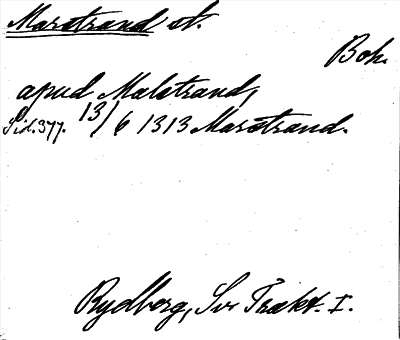 Marstrand st.
Boh.
apud Malstrand,
Sid. 377. 13/6 1313 Marstrand.
Rydberg, Sv. Trakt. I.